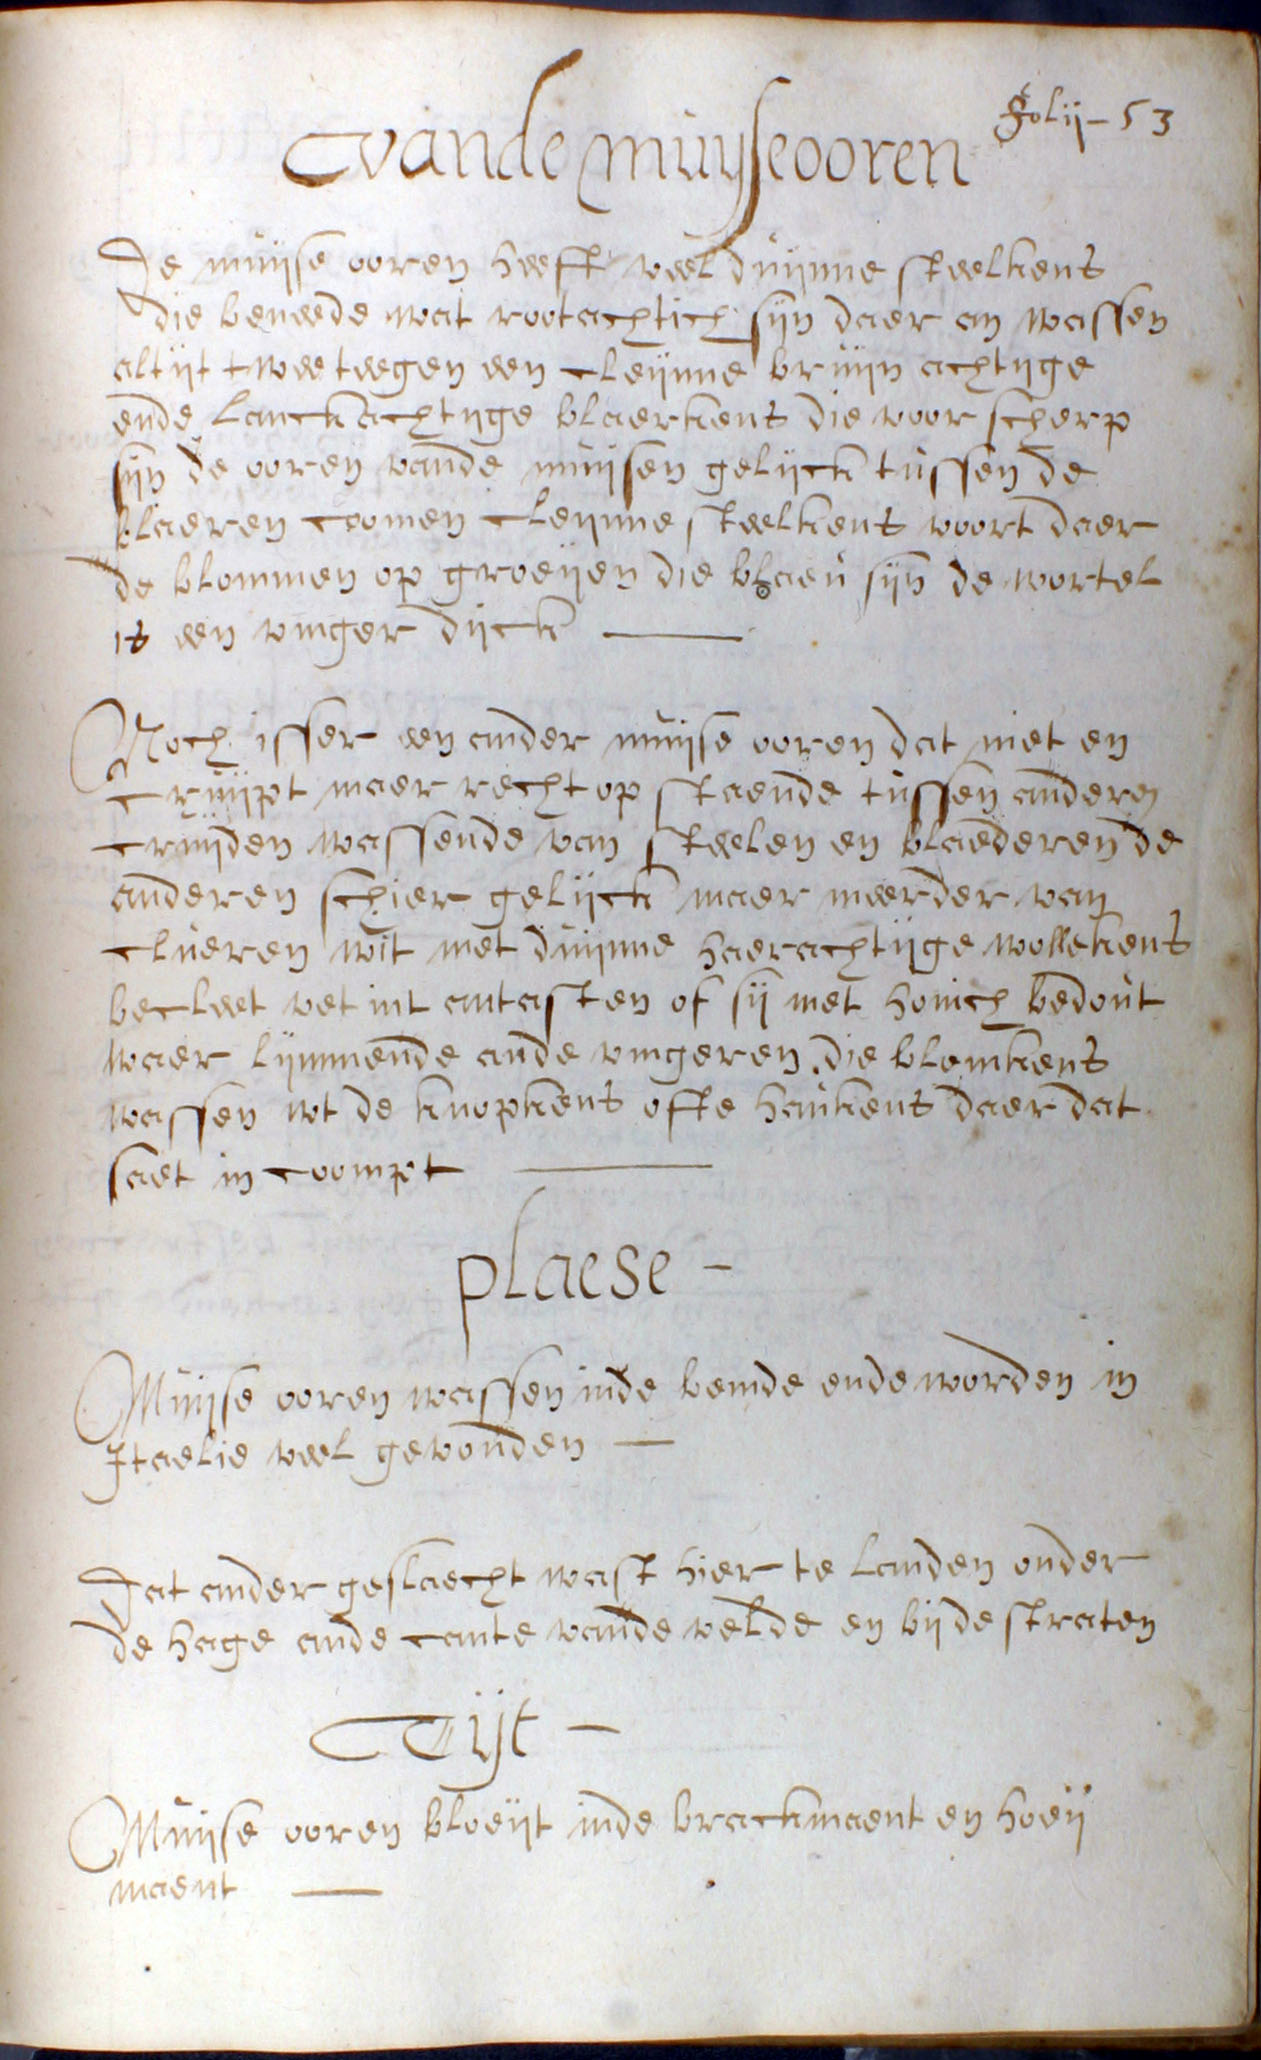 folij - 53
vande muyseooren
De muijse ooren heeft veel duijnne steelkens
die beneede wat rootachtich sijn daer an wassen
altijt twee teegen een cleijnne bruijn achtijge
ende lanckachtijge blaerkens die voor scherp
sijn de ooren vande muijsen gelijck tussen de
blaeren coomen cleijnne steelkens voort daer
de blommen op groeijen die blaeu sijn de wortel
is een vinger dijck
Noch isser een ander muijse ooren dat niet en
cruijpt maer recht op staende tussen anderen
cruijden wassende van steelen en blaederen de
anderen schier gelijck maer meerder van
clueren wit met duijnne haerachtijge wollekens
becleet vet int antasten of sij met honich bedout
waer lijmmende ande vingeren die blomkens
wassen wt de knopkens ofte haukens daer dat
saet in coompt
plaese -
Muijse ooren wassen inde bemde ende worden in
Itaelie veel gevonden
Dat ander geslaecht wast hier te landen onder
de hage ande cante vande velde en bij de straten
Tijt -
Muijse ooren bloeijt inde brackmaent en hoeij
maent